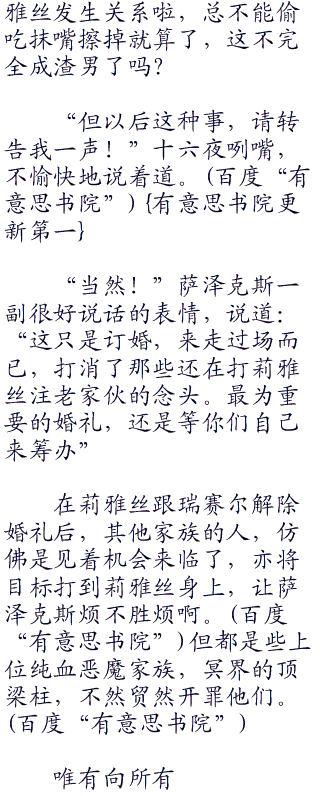 雅丝发生关系啦，总不能偷
吃抹嘴擦掉就算了，这不完
全成渣男了吗？
“但以后这种事，请转
告我一声！”十六夜咧嘴，
不愉快地说着道。(百度“有
意思书院”) {有意思书院更
新第一}
“当然！”萨泽克斯一
副很好说话的表情，说道：
“这只是订婚，来走过场而
已，打消了那些还在打莉雅
丝注老家伙的念头。最为重
要的婚礼，还是等你们自己
来筹办”
在莉雅丝跟瑞赛尔解除
婚礼后，其他家族的人，仿
佛是见着机会来临了，亦将
目标打到莉雅丝身上，让萨
泽克斯烦不胜烦啊。(百度
“有意思书院”)但都是些上
位纯血恶魔家族，冥界的顶
梁柱，不然贸然开罪他们。
(百度“有意思书院”)
唯有向所有